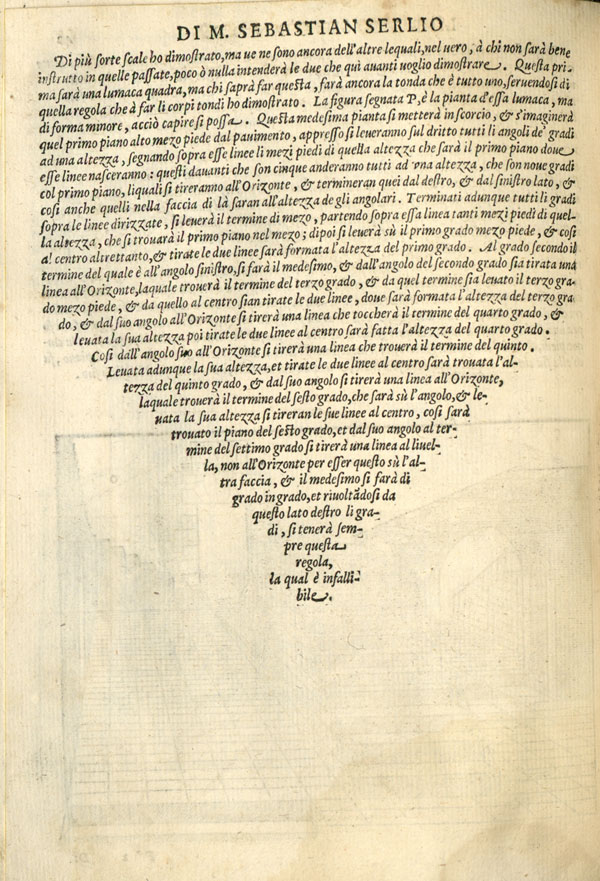 DI M. SEBASTIAN SERLIO
Di più sorte scale ho dimostrato, ma ue ne sono ancora dell'altre lequali, nel uero, à chi non sarà bene
instrutto in quelle passate, poco ò nulla intenderà le due che qui auanti uoglio dimostrare. Questa pri-
ma sarà una lumaca quadra, ma chi saprà far questa, farà ancora la tonda che è tutto uno, seruendosi di
quella regola che à far li corpi tondi ho dimostrato. La figura segnata P, è la pianta d'essa lumaca, ma
di forma minore, acciò capire si possa. Questa medesima pianta si metterà in scorcio, & s'imaginerà
quel primo piano alto mezo piede dal pauimento, appresso si leueranno sul dritto tutti li angoli de' gradi
ad una altezza, segnando sopra esse linee li mezi piedi di quella altezza che sarà il primo piano doue
esse linee nasceranno: questi dauanti che son cinque anderanno tutti ad vna altezza, che son noue gradi
col primo piano, liquali si tireranno all'Orizonte, & termineran quei dal destro, & dal sinistro lato, &
cosi anche quelli nella faccia di là saran all'altezza de gli angolari. Terminati adunque tutti li gradi
sopra le linee dirizzate, si leuerà il termine di mezo, partendo sopra essa linea tanti mezi piedi di quel-
la altezza, che si trouarà il primo piano nel mezo; dipoi si leuerà sù il primo grado mezo piede, & cosi
al centro altrettanto, & tirate le due linee sarà formata l'altezza del primo grado. Al grado secondo il
termine del quale è all'angolo sinistro, si farà il medesimo, & dall'angolo del secondo grado sia tirata una
linea all'Orizonte, laquale trouerà il termine del terzo grado, & da quel termine sia leuato il terzo gra-
do mezo piede, & da quello al centro sian tirate le due linee, doue sarà formata l'altezza del terzo gra
do, & dal suo angolo all'Orizonte si tirerà una linea che toccherà il termine del quarto grado, &
leuata la sua altezza poi tirate le due linee al centro sarà fatta l'altezza del quarto grado.
Cosi dall'angolo suo all'Orizonte si tirerà una linea che trouerà il termine del quinto.
Leuata adunque la sua altezza, et tirate le due linee al centro sarà trouata l'al-
tezza del quinto grado, & dal suo angolo si tirerà una linea all'Orizonte,
laquale trouerà il termine del sesto grado, che sarà sù l'angolo, & le-
uata la sua altezza si tireran le sue linee al centro, cosi sarà
trouato il piano del sesto grado, et dal suo angolo al ter-
mine del settimo grado si tirerà una linea al liuel-
la, non all'Orizonte per esser questo sù l'al-
tra faccia, & il medesimo si farà di
grado in grado, et riuoltãdosi da
questo lato destro li gra-
di, si tenerà sem-
pre questa
regola,
la qual è infalli-
bile.